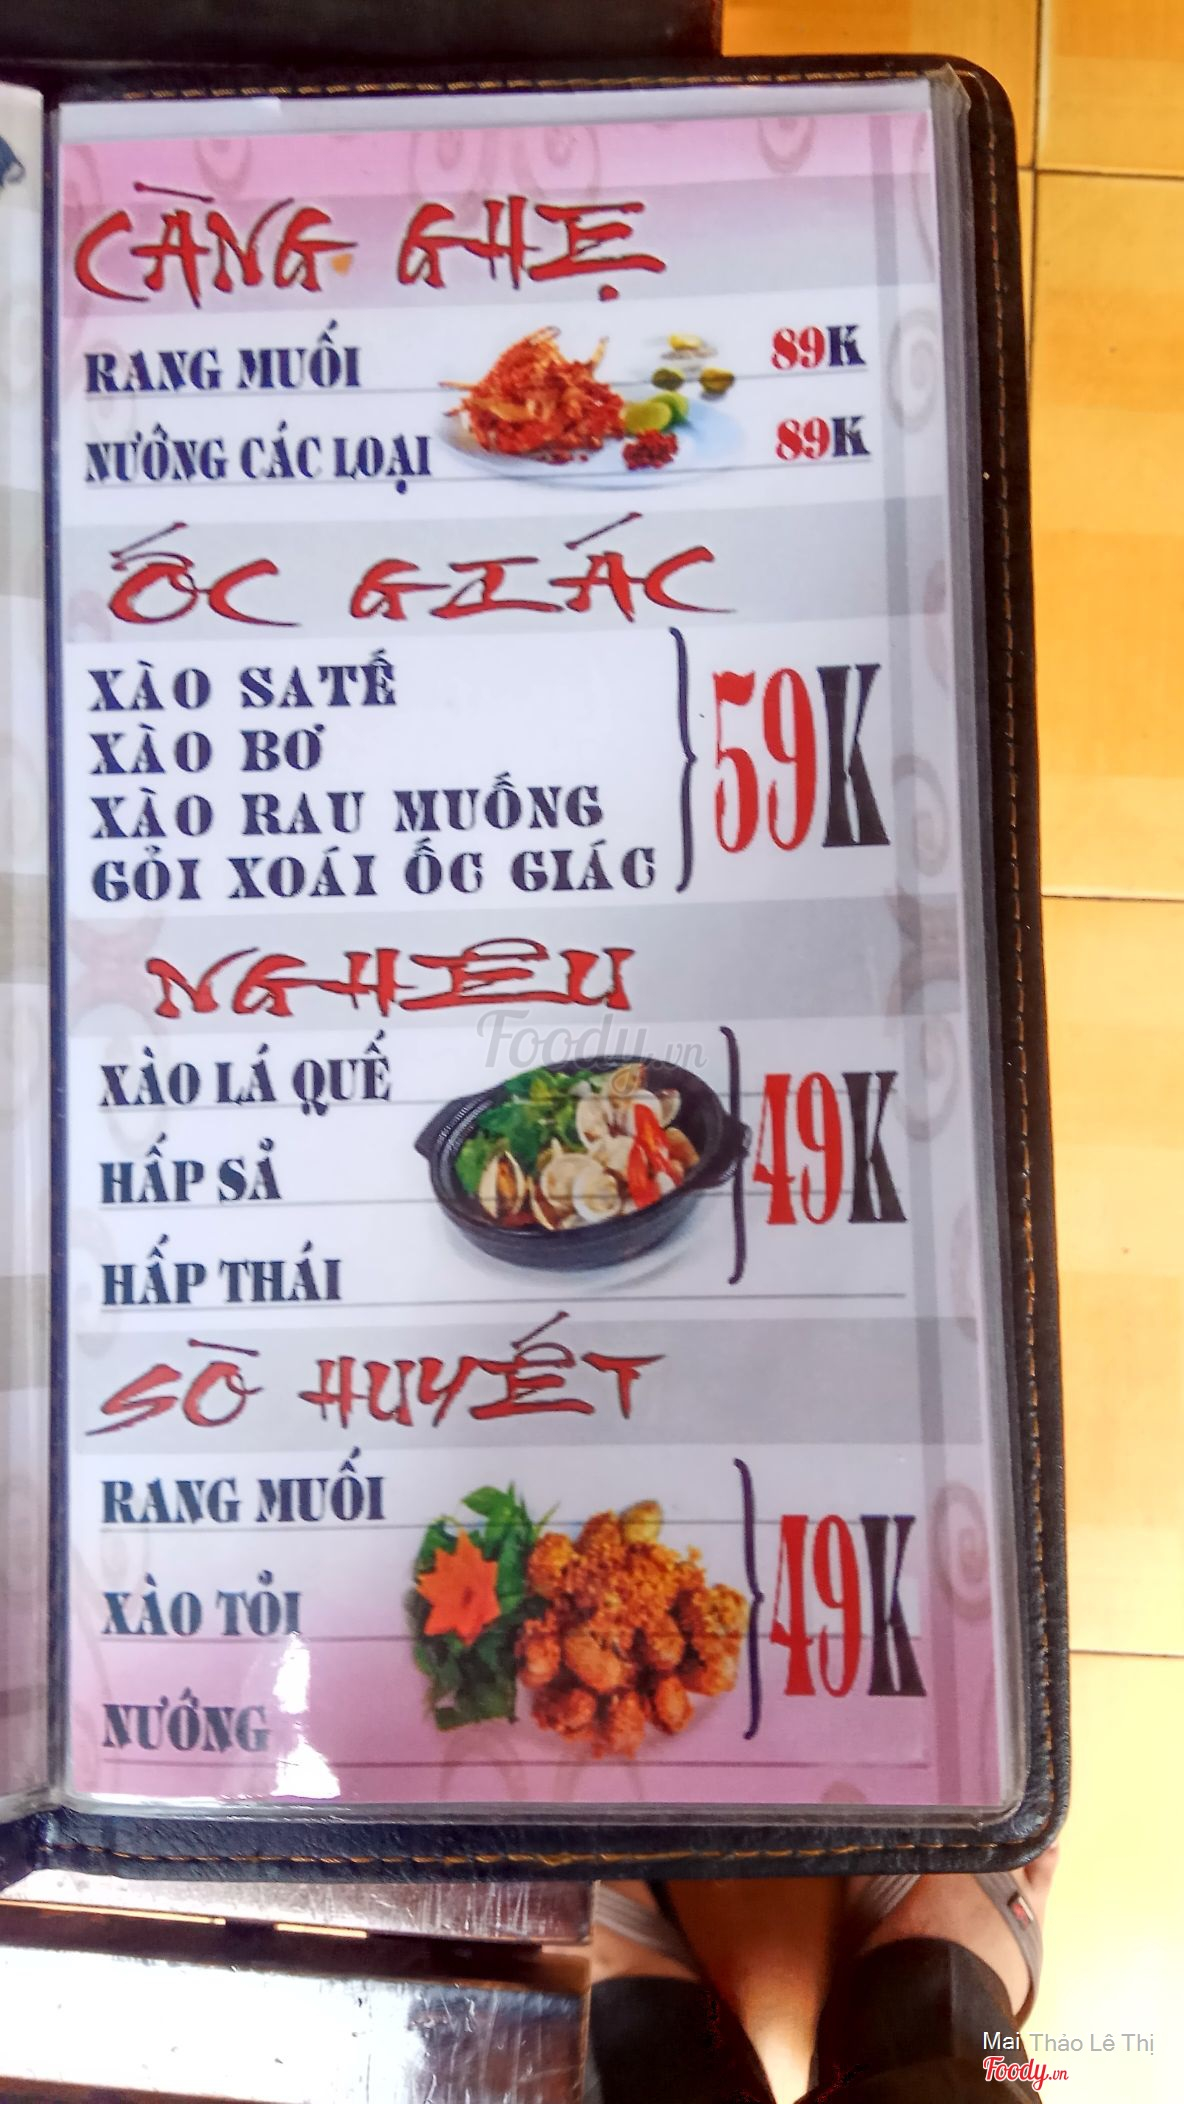 CÀNG GHẸ
RANG MUỐI 89K
NƯỚNG CÁC LOẠI 89K
ỐC GIÁC
XÀO SATẾ
XÀO BƠ
XÀO RAU MUỐNG
GỎI XOÁI ỐC GIÁC
59K
NGHÊU
Foody.vn
XÀO LÁ QUẾ
HẤP SẢ
HẤP THÁI
49K
SÒ HUYẾT
RANG MUỐI
XÀO TỎI
NƯỚNG
49K
Mai Thảo Lê Thị
Foody.vn